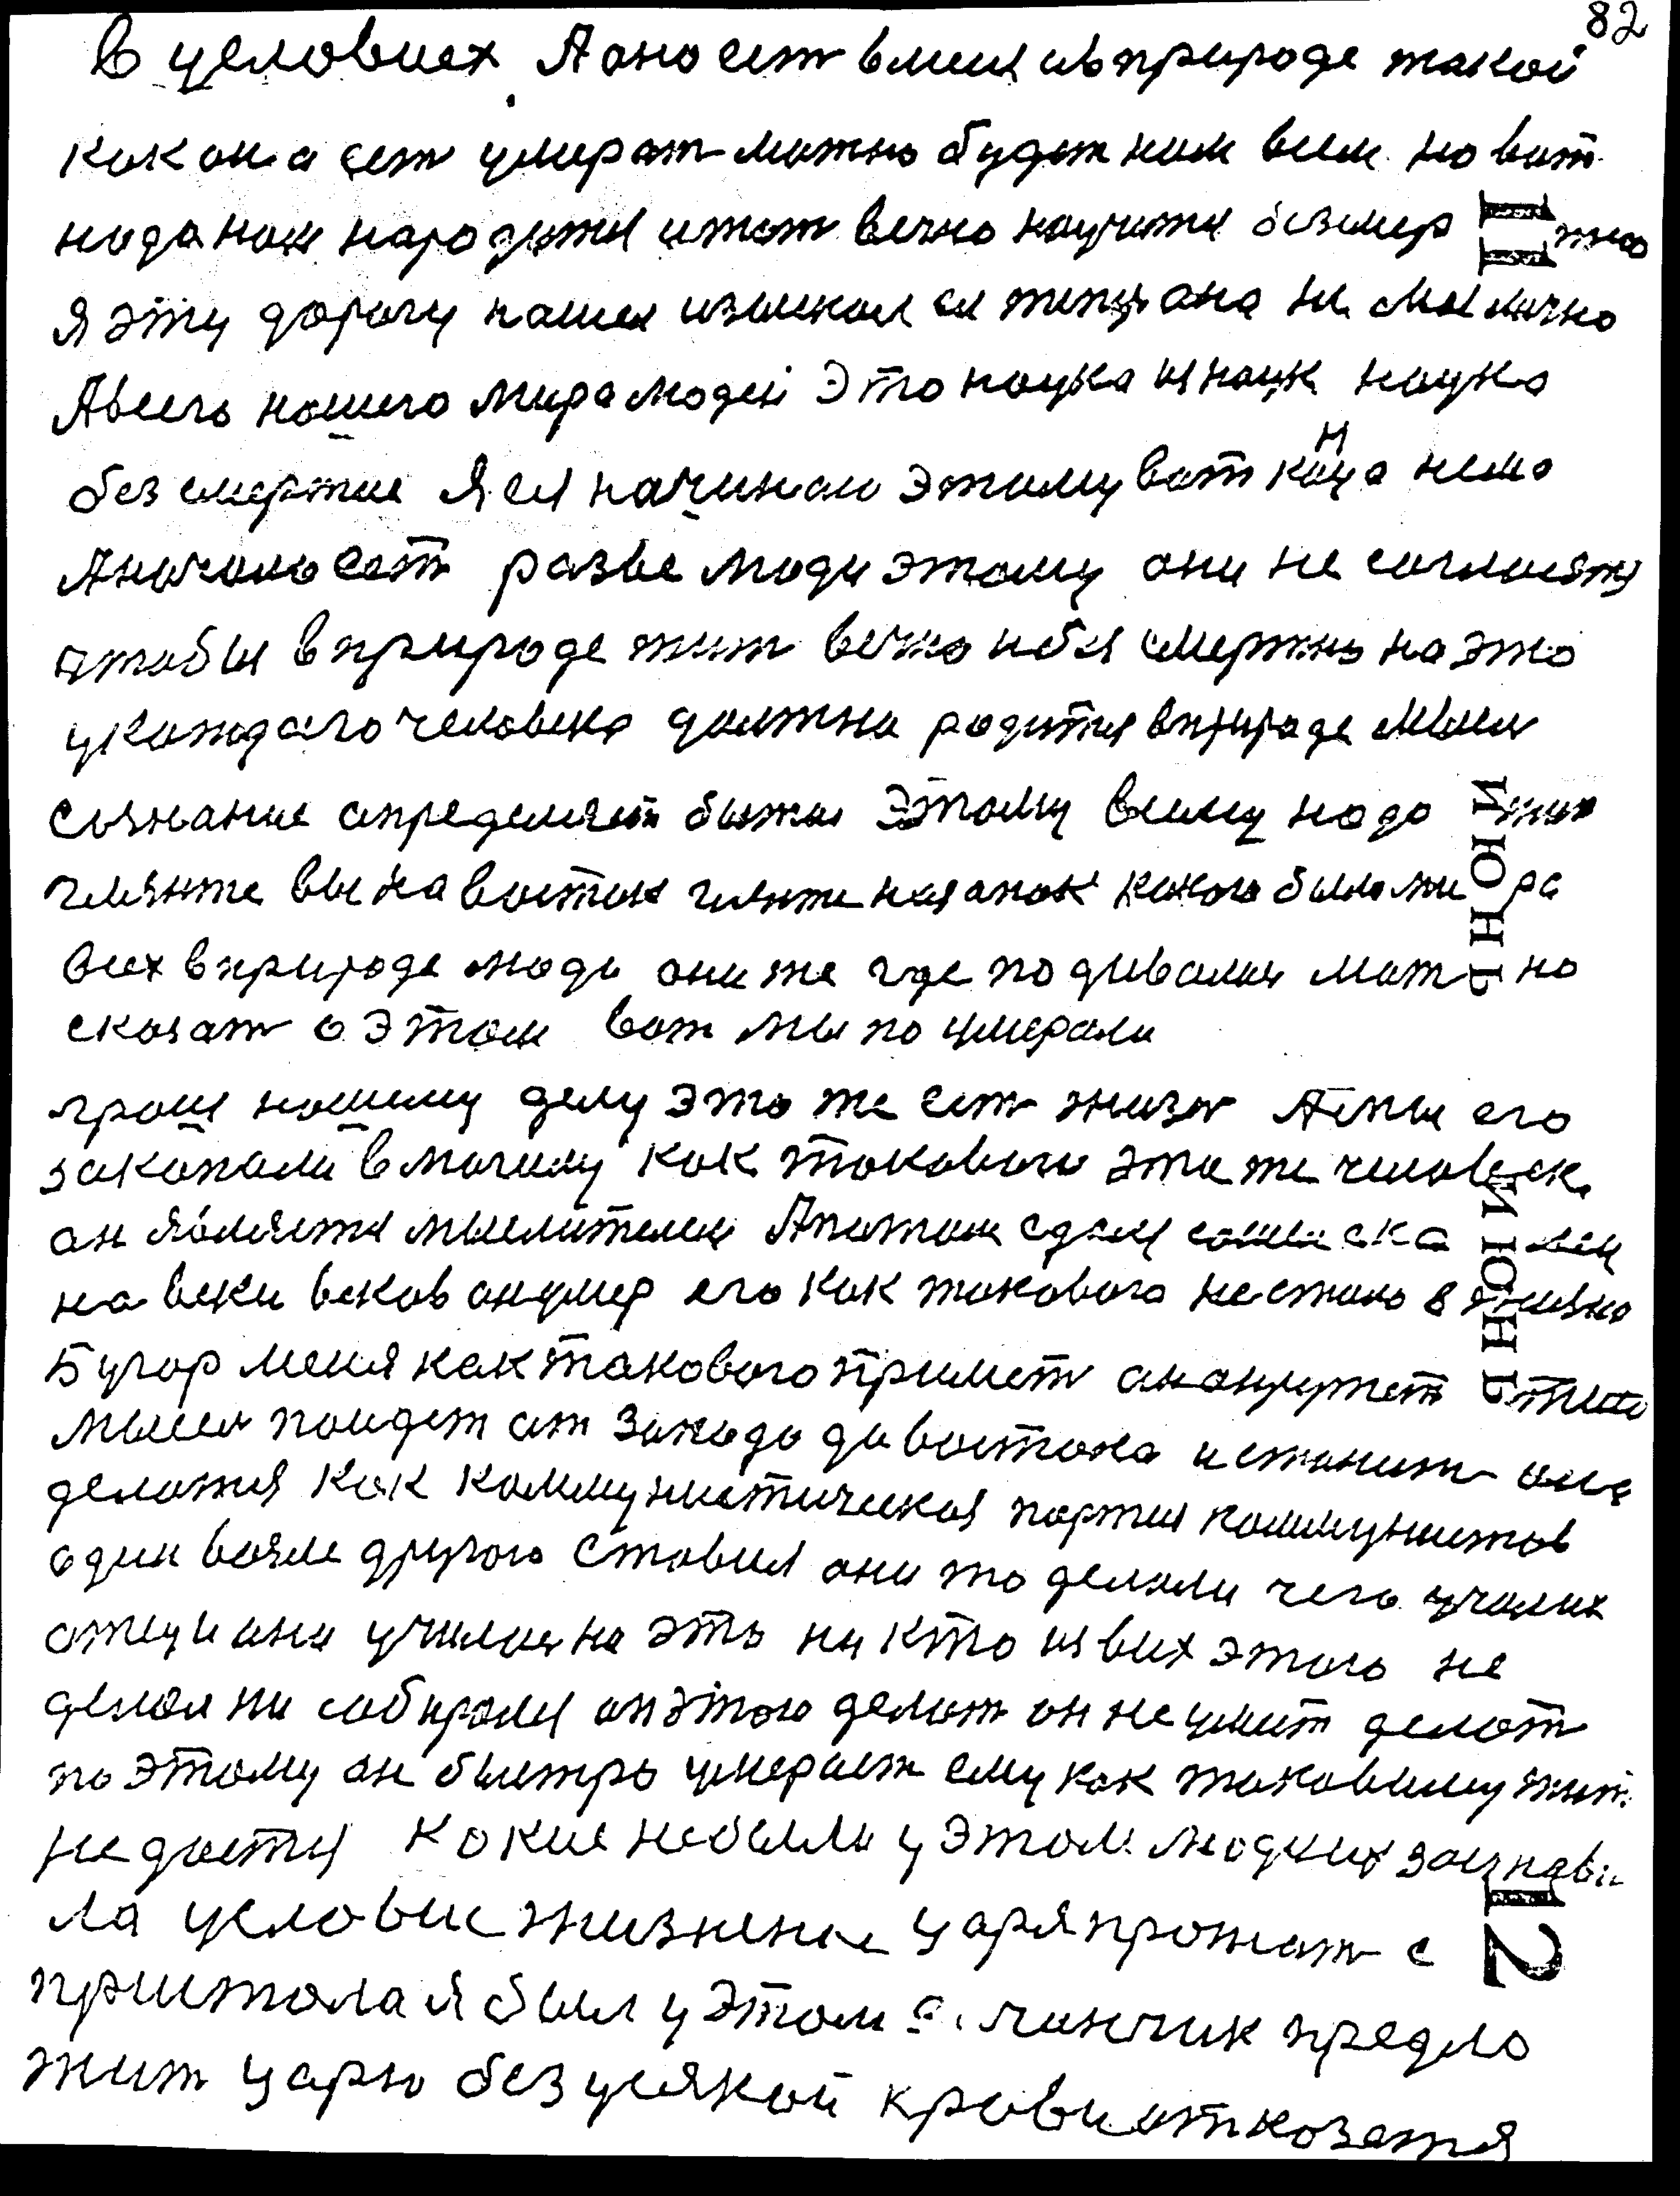 82
в условиех А оно ест всии ивприроде такой
как она ест умерат можно будет нам всем но вот
надо нам народится итот вечно научится безмер тно
я эту дорогу нашел изыскал ей типер она не моя лично
Авсего нашего мира людей Это наука из наук наука
без смертие Я ей начинаю этому вот канца нема
Аначало ест разве люди этому они не согласятя
штобы вприроде жит вечно ибез смертно на это
укаждаго человека должна родится вприроде мысл
сознание определяет бытие Этому всему надо жит
гляньте вы на восток гляньте на запок какого было мира
всех вприроде люди они же где подивалия можно
сказат о Этом вот мы по умерали
грош нашему делу это же ест жизн А мы его
закапали в могилу как такового это же человек
он является мыслителем А потом сдался
на веки веков он умер его как такового не стало в жизни
Бугор меня как такового примет он окружет
мысл пойдет от запада до востока и станит она
делатся как коммунистическая партия коммунистов
один возле другого ставил они то делали чего училих
отцы и они училис на эть ни кто из всих этого не
делал ни собиралея он этого делат он не умеит делат
по этому он быстро умерает ему как таковыму жит
не дается какие небыли у этом люди их заизнави
ла условие жизнене царя прогнат с
пристола я был у этом гончик предло
жит царю без усякой крови отказатя
11
ИЮНЬ
ИЮНЬ
12